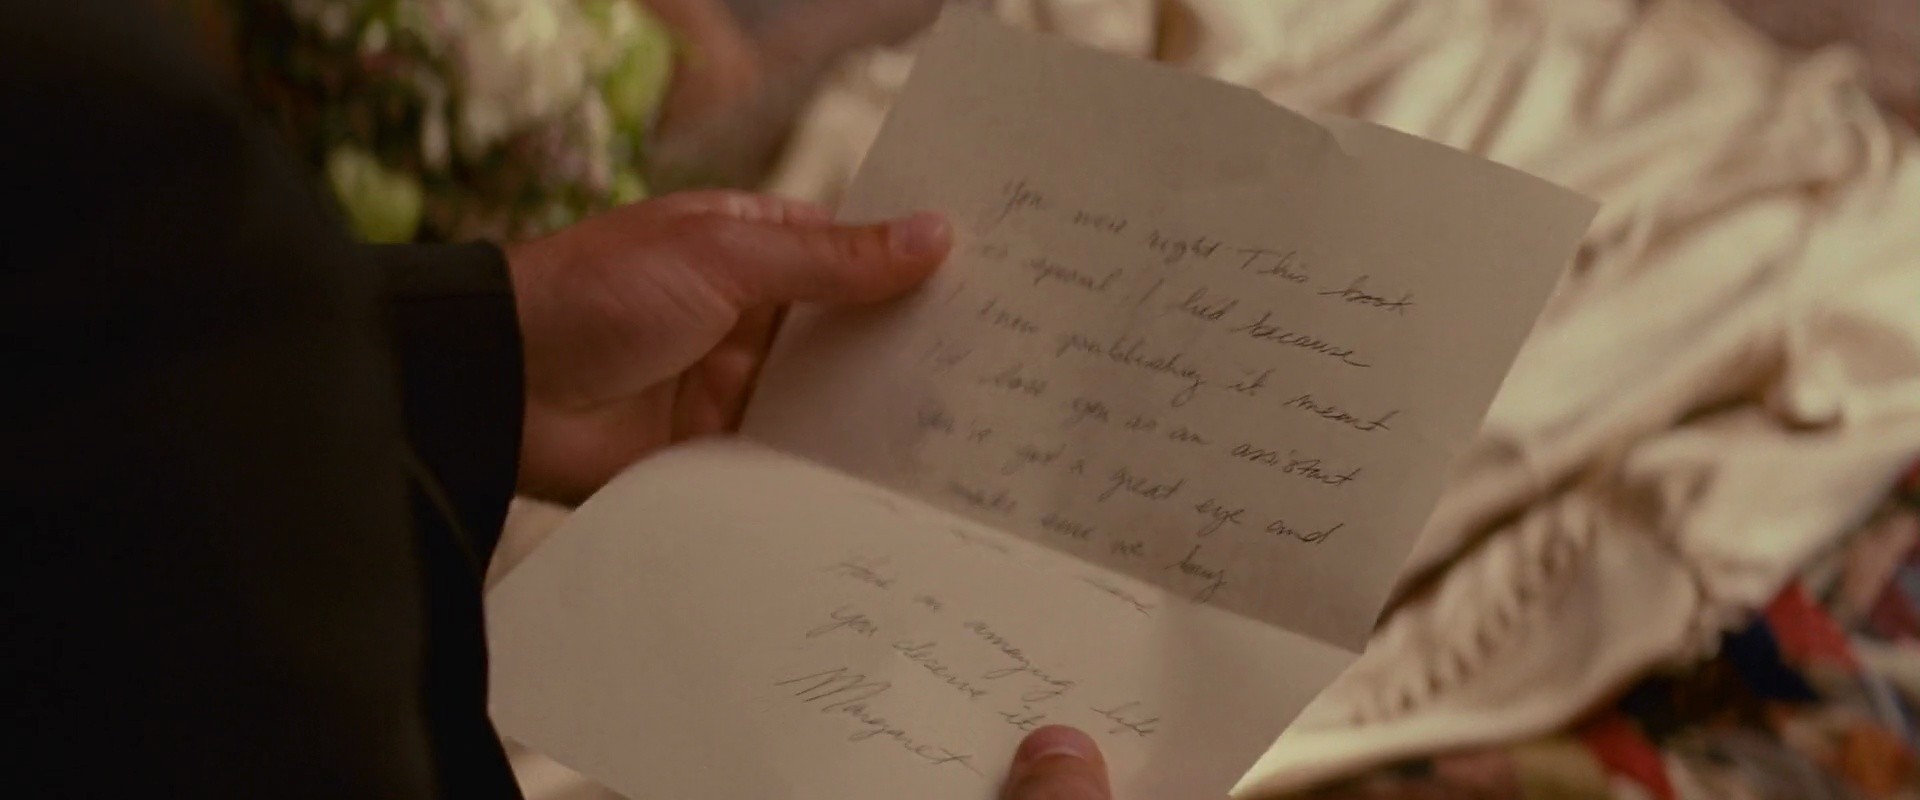 You were right. This book
is special. I lied because
I knew publishing it meant
I'd lose you as an assistant
You've got a great eye and
make sure we buy
Have an amazing life
You deserve it
Margaret